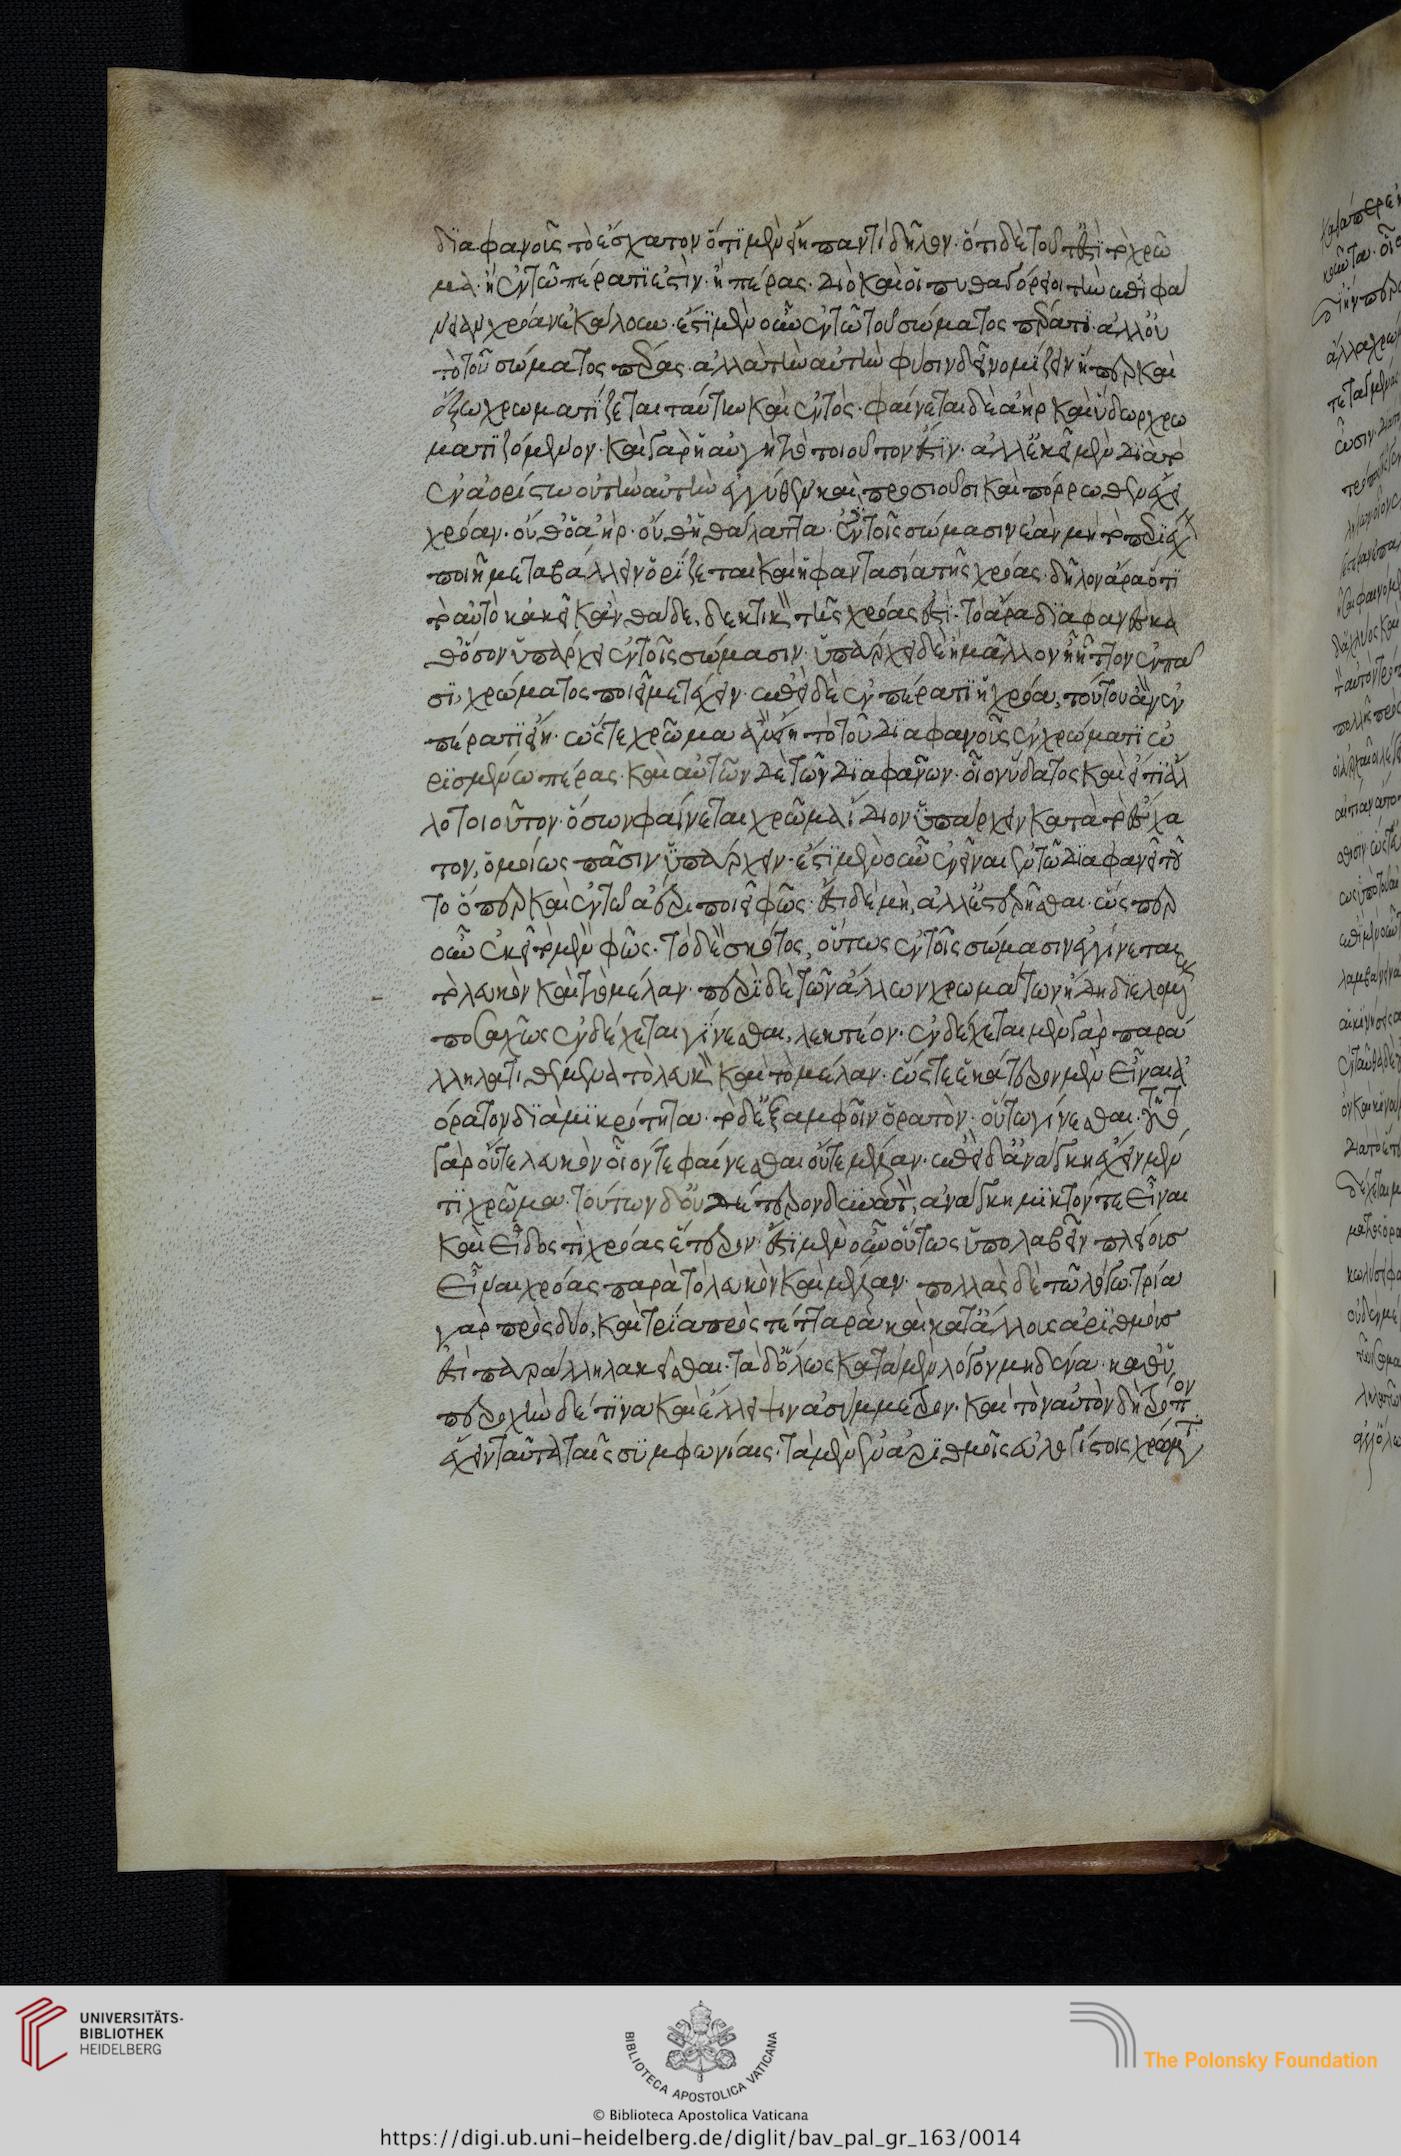 διαφανοῦς τὸ ἔσχατον ὅτι μὲν εἴη παντὶ δῆλον· ὅτι δὲ τοῦτ ἐστὶ τὸ χρῶ
μα· ἢ ἐν τῶ πέρατι ἐστὶν· ἢ πέρας· διὸ καὶ οἱ πυθαγόρειοι τὴν ἐπιφά
νειαν χρόαν ἐκάλουν· ἔστι μὲν οὖν ἐν τῶ τοῦ σώματος πέρατι· ἀλλ οὐ
τὸ τοῦ σώματος πέρας· ἀλλὰ τὴν αὐτὴν φύσιν δεῖ νομίζειν ἥπερ καὶ
ἔξω χρωματίζεται ταύτην καὶ ἐντὸς· φαίνεται δὲ ἀὴρ καὶ ὕδωρ χρω
ματιζόμενον· καὶ γὰρ ἡ αὐγὴ τὸ τοιοῦτον ἐστίν· ἀλλ ἐκεῖ μὲν διὰ τὸ
ἐν ἀορίστω οὐ τὴν αὐτὴν ἐγγύθεν καὶ προσιοῦσι καὶ πόρρωθεν ἔχει
χρόαν· οὐθ ὁ ἀὴρ· οὐθ ἡ θάλαττα· ἐν τοῖς σώμασιν ἐὰν μὴ τὸ περιέχ
ποιῆ μεταβάλλειν ὁρίζεται καὶ ἡ φαντασία τῆς χρόας· δῆλον ἄρα ὅτι
τὸ αὐτὸ κἀκεῖ κἀνθάδε, δεκτικὸν τῆς χρόας ἐστί· τὸ ἄρα διαφανὲς κα
θόσον ὑπάρχει ἐν τοῖς σώμασιν· ὑπάρχει δὲ ἢ μᾶλλον ἢ ἧττον ἐν πᾶ
σι, χρώματος ποιεῖ μετέχειν· ἐπεὶ δὲ ἐν πέρατι ἡ χρόα, τούτου ἂν ἐν
πέρατι εἴη· ὥστε χρῶμα ἂν εἴη τὸ τοῦ διαφανοῦς ἐν χρώματι ὡ
ρισμένω πέρας· καὶ αὐτῶν δὲ τῶν διαφανῶν· οἷον ὕδατος καὶ εἴ τι ἄλ
λο τοιοῦτον· ὅσων φαίνεται χρῶμα ἴδιον ὑπάρχειν κατὰ τὸ ἔσχα
τον, ὁμοίως πᾶσιν ὑπάρχειν· ἔστι μὲν οὖν ἐνεῖναι ἐν τῶ διαφανεῖ τοῦ
το ὅπερ καὶ ἐν τῶ ἀέρι ποιεῖ φῶς· ἔστι δὲ μὴ, ἀλλ ἐστερῆσθαι· ὥσπερ
οὖν ἐκεῖ τὸ μὲν φῶς· τὸ δὲ σκότος, οὕτως ἐν τοῖς σώμασιν ἐγγίνεται
τὸ λευκὸν καὶ τὸ μέλαν· περὶ δὲ τῶν ἄλλων χρωμάτων ἤδη διελομέν
ποσαχῶς ἐνδέχεται γίνεσθαι, λεκτέον· ἐνδέχεται μὲν γὰρ παρά
λληλα τιθέμενα τὸ λευκὸν καὶ τὸ μέλαν· ὥστε ἑκάτερον μὲν εἶναι ἀ
όρατον διὰ μικρότητα· τὸ δ ἐξ ἀμφοῖν ὁρατὸν· οὕτω γίνεσθαι· τοῦτο
γὰρ οὔτε λευκὸν οἷόν τε φαίνεσθαι οὔτε μέλαν· ἐπεὶ δ ἀνάγκη ἔχειν μέν
τι χρῶμα· τούτων δ οὐδέτερον δυνατὸν, ἀνάγκη μικτόν τε εἶναι
καὶ εἶδός τι χρόας ἕτερον· ἔστι μὲν οὖν οὕτως ὑπολαβεῖν πλείους
εἶναι χρόας παρὰ τὸ λευκὸν καὶ μέλαν· πολλὰς δὲ τῶ λόγω· τρία
γὰρ πρὸς δύο, καὶ τρία πρὸς τέτταρα καὶ κατ ἄλλους ἀριθμούς
ἔστι παράλληλα κεῖσθαι· τὰ δ ὅλως κατὰ μὲν λόγον μηδένα· καθ ὑ
περοχὴν δέ τινα καὶ ἔλλειψιν ἀσύμμετρον· καὶ τὸν αὐτὸν δὴ τρόπον
ἔχειν ταῦτα ταῖς συμφωνίαις· τὰ μὲν ἐν ἀριθμοῖς εὐλογίστοις χρώματ
UNIVERSITÄTS-
BIBLIOTHEK
HEIDELBERG
BIBLIOTECA APOSTOLICA VATICANA
The Polonsky Foundation
© Biblioteca Apostolica Vaticana
https://digi.ub.uni-heidelberg.de/diglit/bav_pal_gr_163/0014